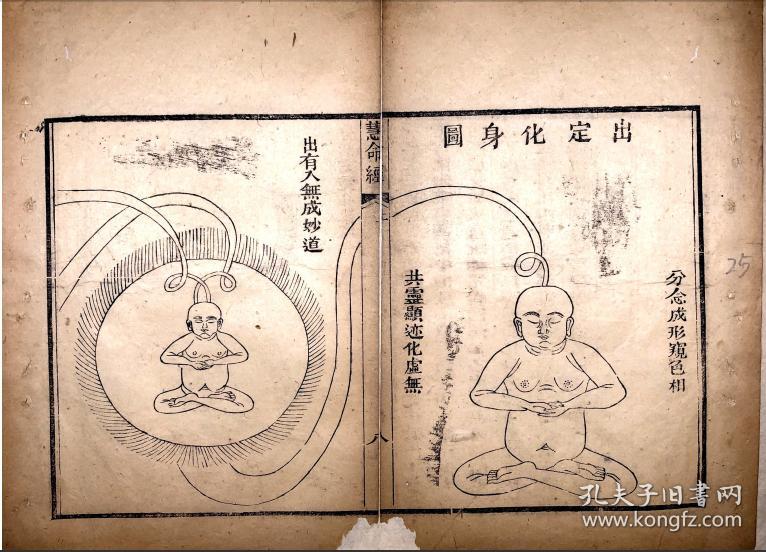 出定化身圖
分念成形窺色相
共靈顯迹化虛無
慧命經
八
出有入無成妙道
25
孔夫子旧书网
www.kongfz.com